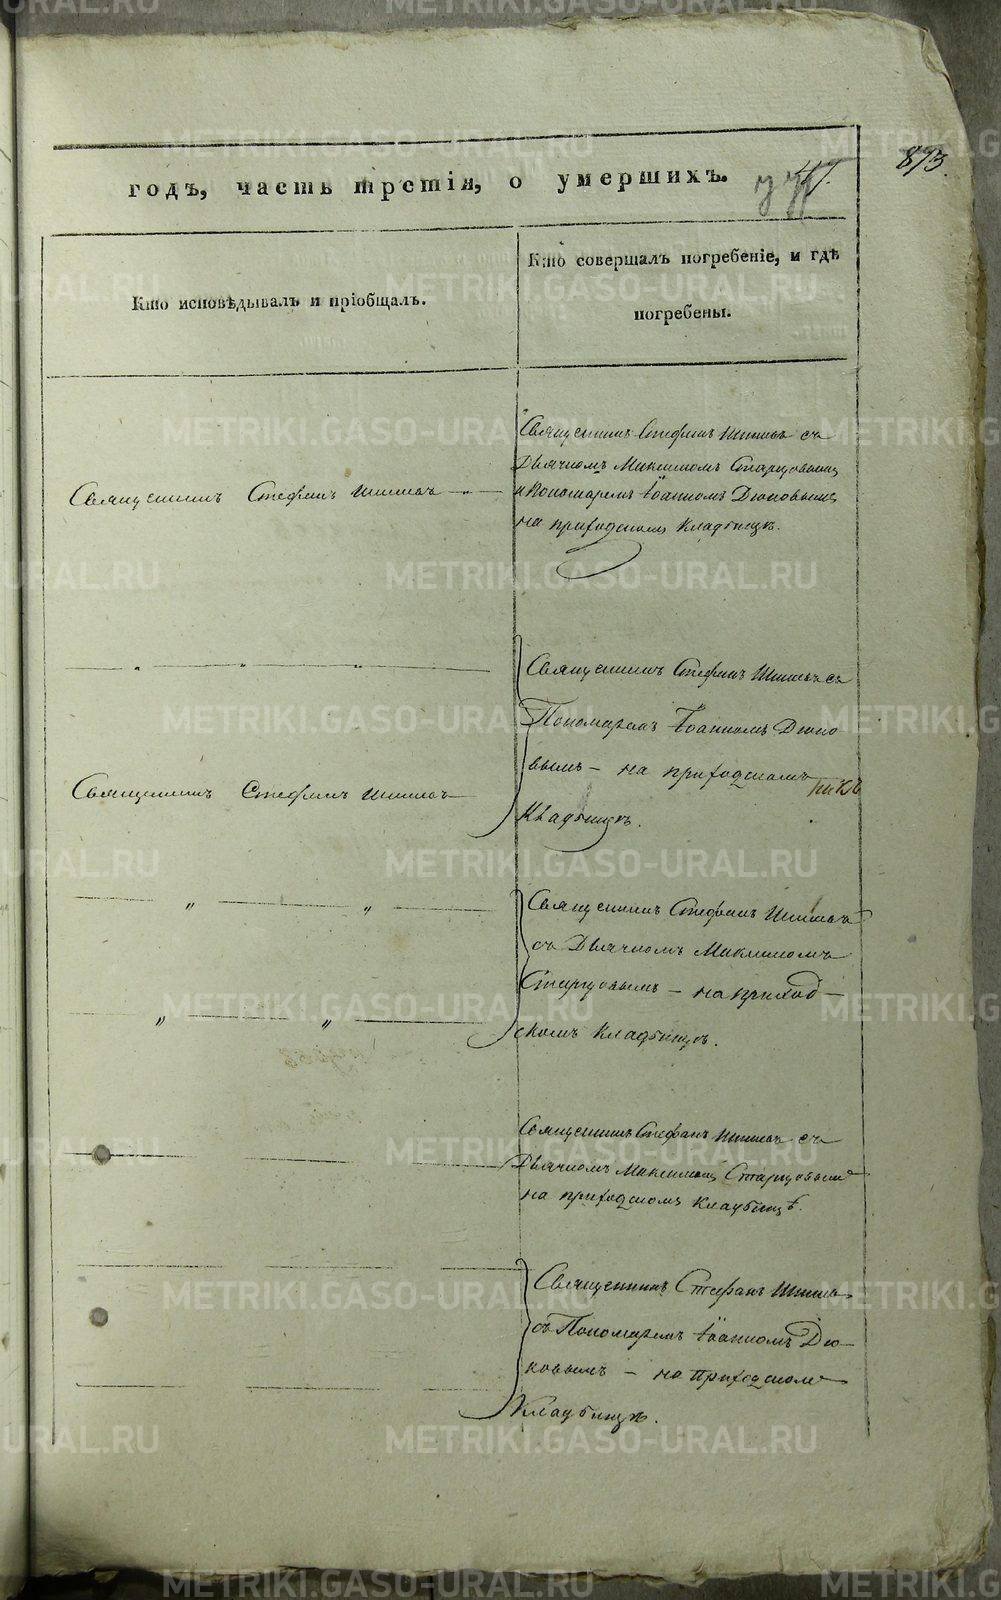 873.
годъ, часть третія, о умершихъ.
Кто исповѣдывалъ и пріобщалъ.
Кто совершалъ погребеніе, и гдѣ
погребены.
Священникъ Стефанъ
Священникъ Стефанъ съ
Дьячкомъ Максимомъ Старцовымъ
и Пономаремъ Іоанномъ Дюковымъ
на приходскомъ Кладбищѣ.
Священникъ Стефанъ съ
Пономаремъ Іоанномъ Дюко
вымъ — на приходскомъ
Кладбищѣ.
Священникъ Стефанъ
Священникъ Стефанъ
съ Дьячкомъ Максимомъ
Старцовымъ — на приход-
скомъ кладбищѣ.
Священникъ Стефанъ съ
Дьячкомъ Максимомъ Старцовымъ
на приходскомъ кладбищѣ.
Священникъ Стефанъ
съ Пономаремъ Іоанномъ Дю-
ковымъ — на приходскомъ
Кладбищѣ.
METRIKI.GASO-URAL.RU